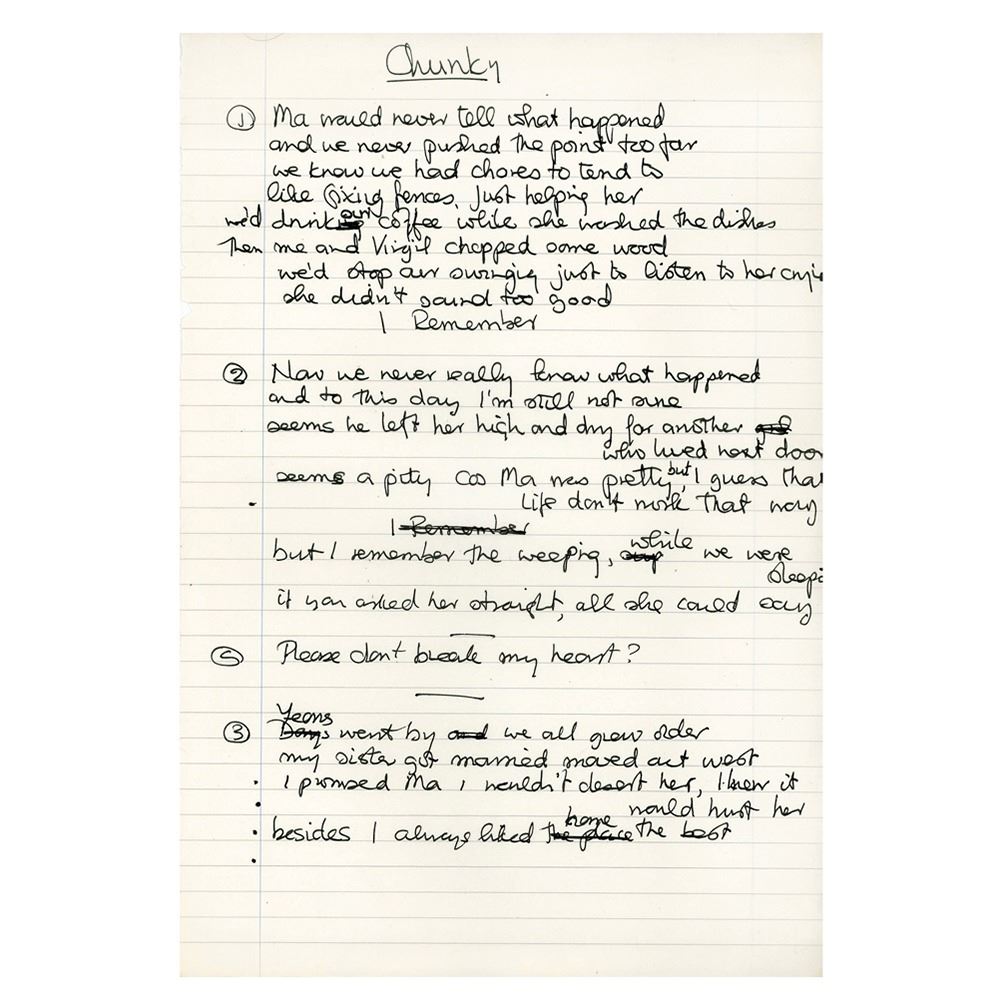 Chunky
① Ma would never tell what happened
and we never pushed the point too far
we know we had chores to tend to
like fixing fences, just helping her
we'd drinking our coffee while she washed the dishes
Then me and Virgil chopped some wood
we'd stop our swinging just to listen to her cryin
she didn't sound too good
I Remember
② Now we never really know what happened
and to this day I'm still not sure
seems he left her high and dry for another
who lived next door
seems a pity cos Ma was pretty, but I guess that
life don't work that way
I Remember
but I remember the weeping, while we were
sleepi
if you asked her straight, all she could say
Please don't break my heart?
③ Years Days went by and we all grew older
my sister got married moved out west
I promised Ma I wouldn't desert her, I knew it
would hurt her
besides I always liked the place home the best